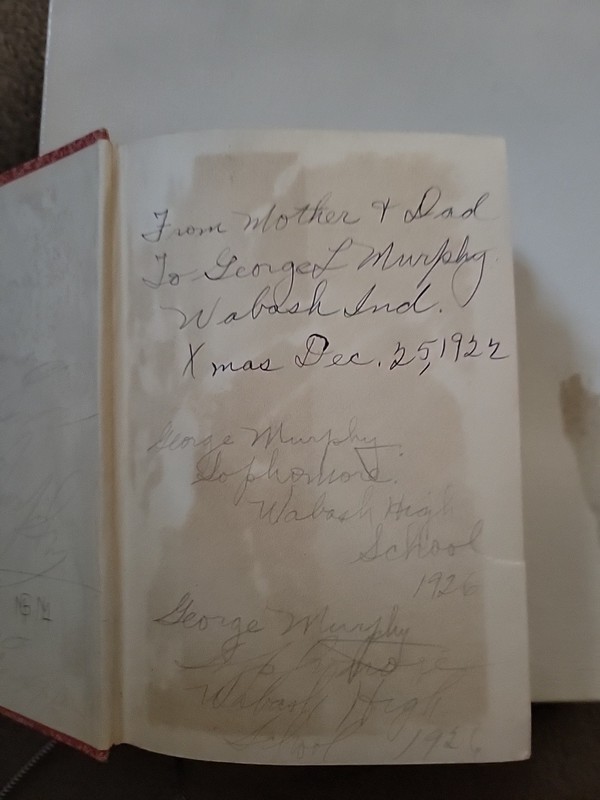 From Mother & Dad
To George L Murphy
Wabash Ind.
Xmas Dec. 25, 1922
George Murphy
Sophomore.
Wabash High
School
1926
George Murphy
Sophomore
Wabash High
School 1926